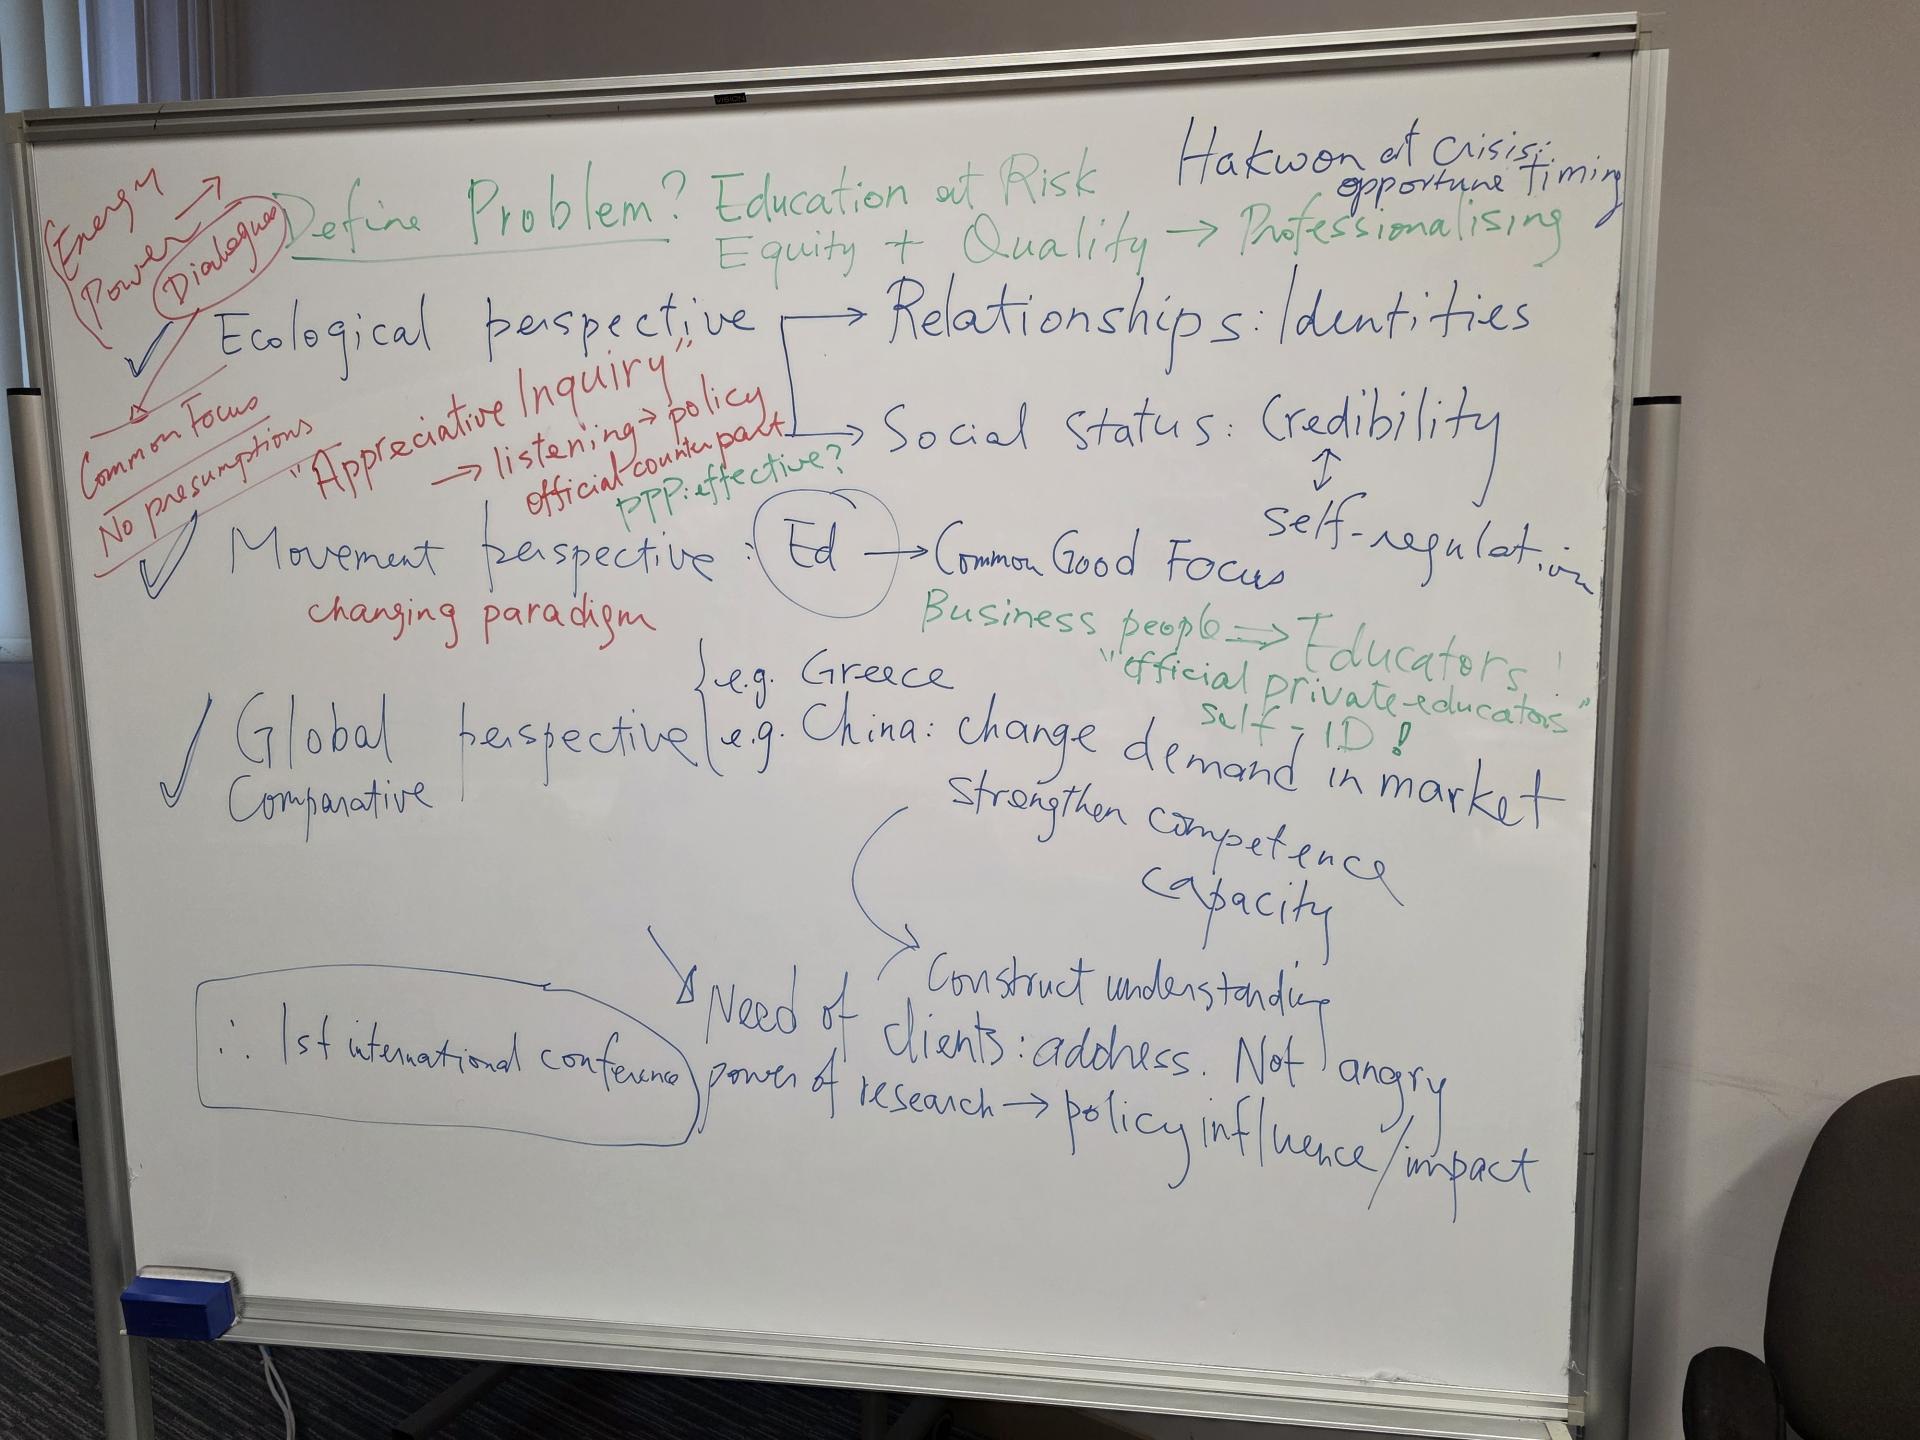 VISION
Hakwon at crisis:
opportune timing
Energy
Power →
Dialogues
Define Problem? Education at Risk
Equity + Quality → Professionalising
✓ Ecological perspective → Relationships: Identities
→ Social status: Credibility
↕
self-regulation
Common Focus
No presumptions
"Appreciative Inquiry"
→ listening → policy
official counterpart
PPP: effective?
✓ Movement perspective: Ed → Common Good Focus
changing paradigm
Business people ⇒ Educators!
"official private-educators"
self-ID!
✓ Global perspective { e.g. Greece
Comparative
e.g. China: change demand in market
strengthen competence
capacity
Construct understanding
Need of clients: address. Not angry
power of research → policy influence/impact
∴ 1st international conference